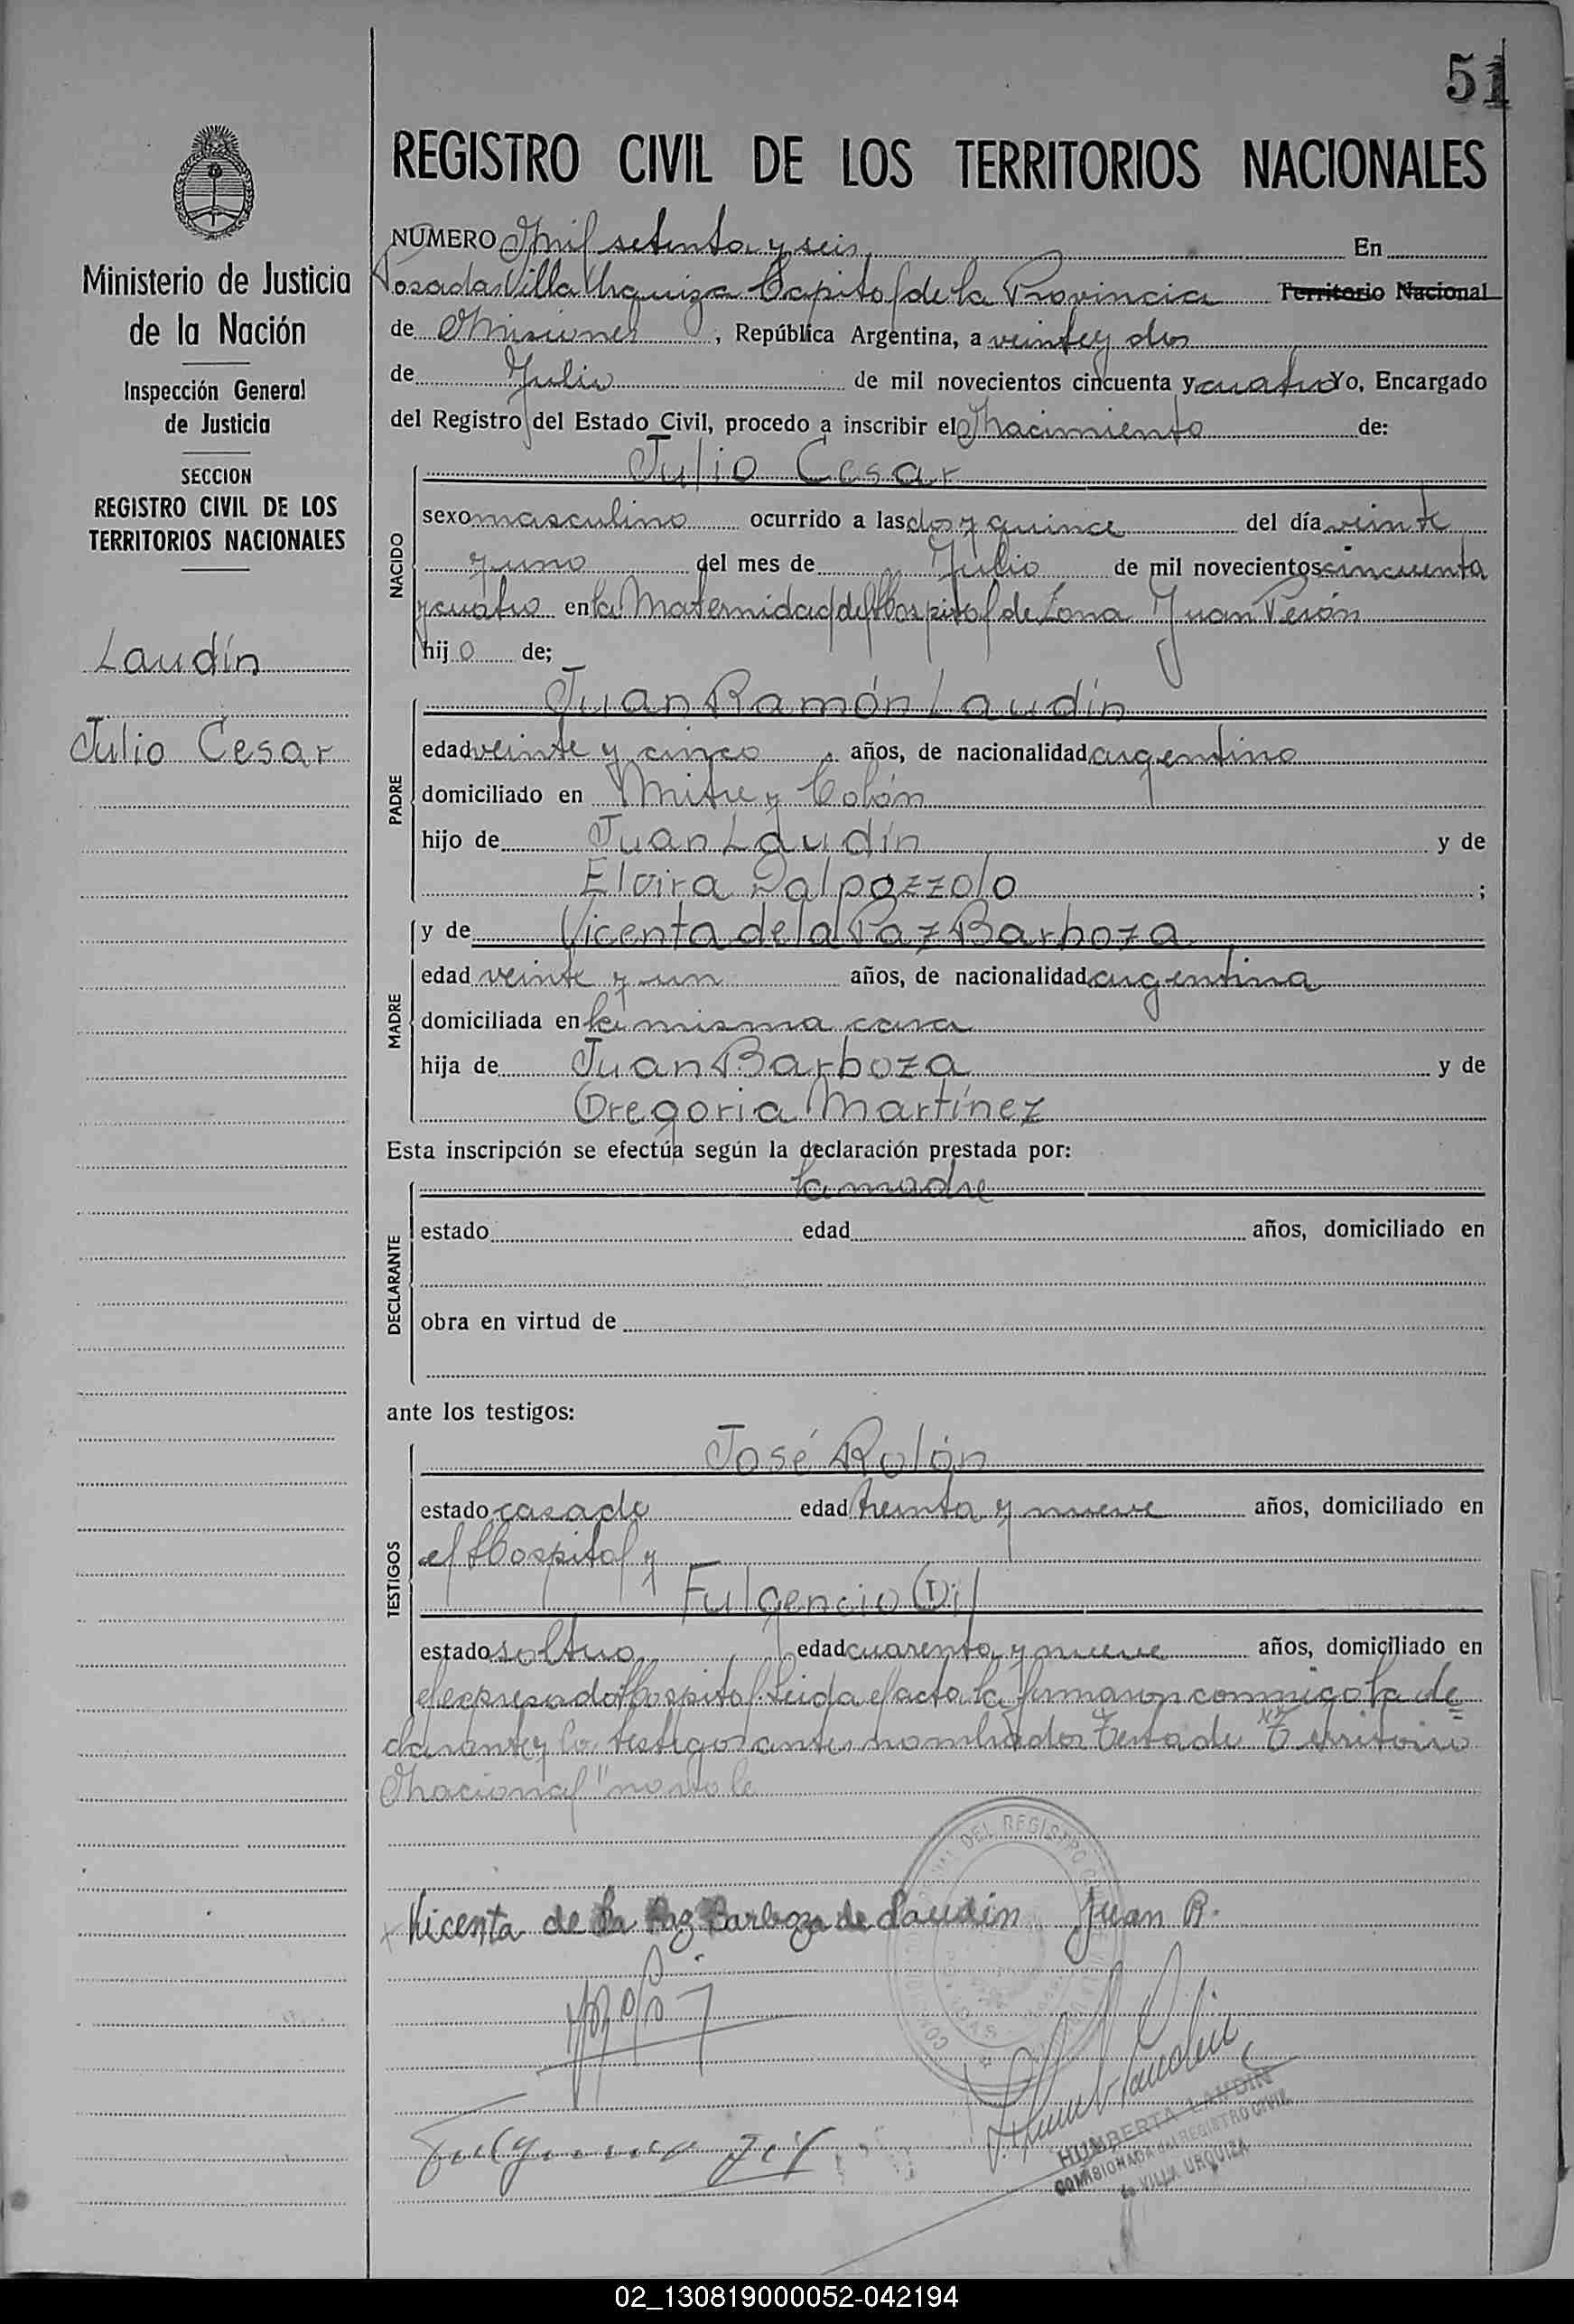 51
REGISTRO CIVIL DE LOS TERRITORIOS NACIONALES
Ministerio de Justicia
de la Nación
Inspección General
de Justicia
SECCION
REGISTRO CIVIL DE LOS
TERRITORIOS NACIONALES
Laudín
Julio Cesar
NUMERO Mil setenta y seis En
Posadas Villa Urquiza Capital de la Provincia Territorio Nacional
de Misiones, República Argentina, a veinte y dos
de Julio de mil novecientos cincuenta y cuatro Yo, Encargado
del Registro del Estado Civil, procedo a inscribir el Nacimiento de:
NACIDO
Julio Cesar
sexo masculino ocurrido a las dos y quince del día veinte
y uno del mes de Julio de mil novecientos cincuenta
y cuatro en la Maternidad del Hospital de Zona Juan Perón
hijo de;
PADRE
Juan Ramón Laudín
edad veinte y cinco años, de nacionalidad argentino
domiciliado en Mitre y Colón
hijo de Juan Laudín y de
Elvira Dalpozzolo ;
MADRE
y de Vicenta de la Paz Barboza
edad veinte y un años, de nacionalidad argentina
domiciliada en la misma casa
hija de Juan Barboza y de
Gregoria Martínez
Esta inscripción se efectúa según la declaración prestada por:
DECLARANTE
la madre
estado edad años, domiciliado en
obra en virtud de
ante los testigos:
TESTIGOS
José Rolón
estado casado edad treinta y nueve años, domiciliado en
el Hospital y
Fulgencio Gil
estado soltero edad cuarenta y nueve años, domiciliado en
el expresado Hospital. Leida el acta la firmaron conmigo la de=
clarante y los testigos antes nombrados Testado "Territorio
Nacional" no vale
Vicenta de la Paz Barboza de Laudin Juan R.
HUMBERTA LAUDIN
COMISIONADA del REGISTRO CIVIL
de VILLA URQUIZA
02_130819000052-042194